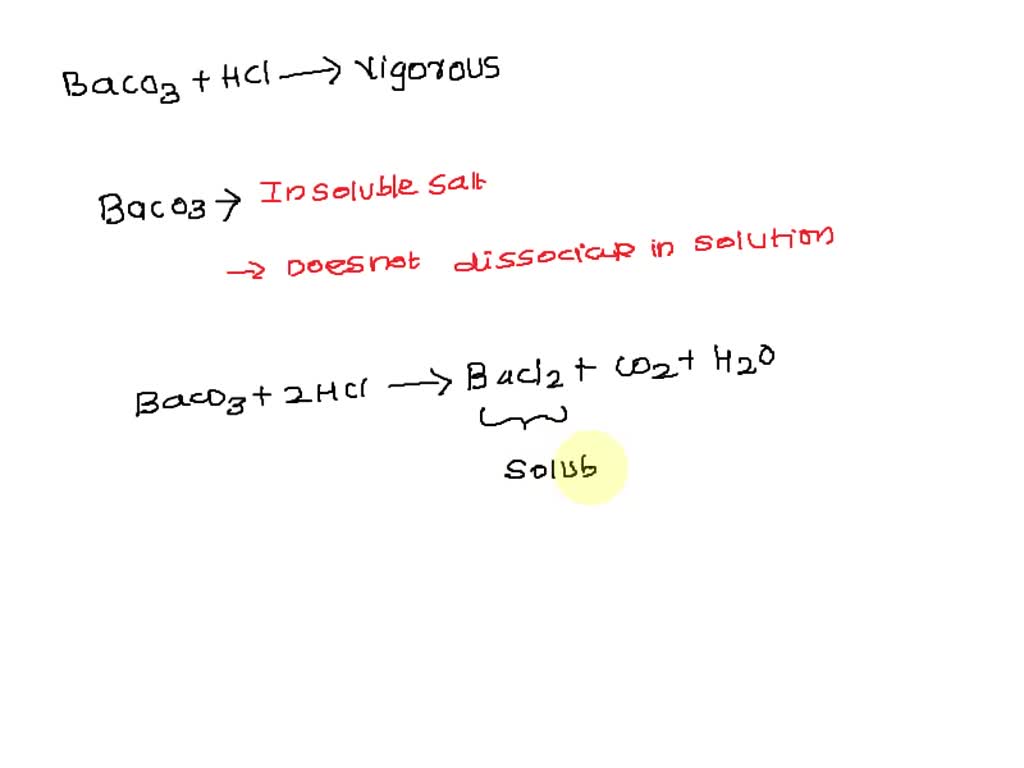 BaCO3 + HCl → Vigorous
BaCO3 → Insoluble salt
→ Does not dissociate in solution
BaCO3 + 2HCl → BaCl2 + CO2 + H2O
Solub